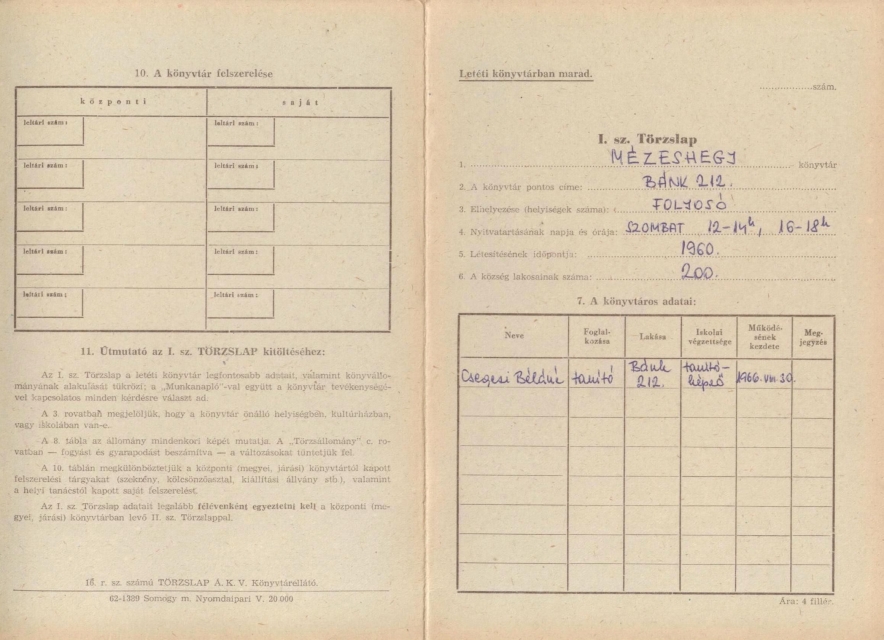 10. A könyvtár felszerelése
központi saját
leltári szám: leltári szám:
leltári szám: leltári szám:
leltári szám: leltári szám:
leltári szám: leltári szám:
leltári szám: leltári szám:
11. Útmutató az I. sz. TÖRZSLAP kitöltéséhez:
Az I. sz. Törzslap a letéti könyvtár legfontosabb adatait, valamint könyvállo-
mányának alakulását tükrözi; a „Munkanapló"-val együtt a könyvtár tevékenységé-
vel kapcsolatos minden kérdésre választ ad.
A 3. rovatban megjelöljük, hogy a könyvtár önálló helyiségben, kultúrházban,
vagy iskolában van-e.
A 8. tábla az állomány mindenkori képét mutatja. A „Törzsállomány" c. ro-
vatban — fogyást és gyarapodást beszámítva — a változásokat tüntetjük fel.
A 10. táblán megkülönböztetjük a központi (megyei, járási) könyvtártól kapott
felszerelési tárgyakat (szekrény, kölcsönzőasztal, kiállítási állvány stb.), valamint
a helyi tanácstól kapott saját felszerelést.
Az I. sz. Törzslap adatait legalább félévenként egyeztetni kell a központi (me-
gyei, járási) könyvtárban levő II. sz. Törzslappal.
16. r. sz. számú TÖRZSLAP Á. K. V. Könyvtárellátó.
62-1399 Somogy m. Nyomdaipari V. 20 000
Letéti könyvtárban marad.
szám.
I. sz. Törzslap
1. MÉZESHEGY könyvtár
2. A könyvtár pontos címe: BÁNK 212.
3. Elhelyezése (helyiségek száma): FOLYOSÓ
4. Nyitvatartásának napja és órája: SZOMBAT 12-14h, 16-18h
5. Létesítésének időpontja: 1960.
6. A község lakosainak száma: 200.
7. A könyvtáros adatai:
Neve Foglal- Lakása Iskolai Működé- Meg-
kozása végzettsége sének jegyzés
kezdete
Csegesi Béláné tanító Bánk tanító- 1966. VIII. 30.
212. képző
Ára: 4 fillér.